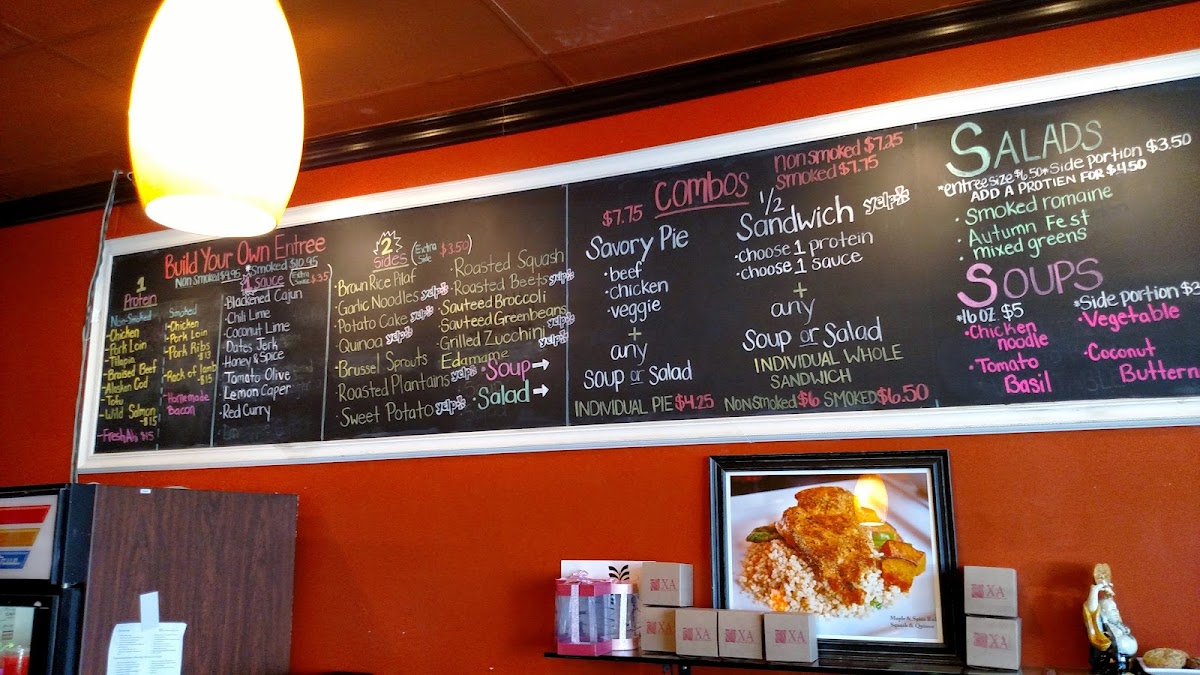 Build Your Own Entree
Non Smoked $9.95 Smoked $10.95
1
Protein
Non-Smoked
-Chicken
-Pork Loin
-Tilapia
-Braised Beef
-Alaskan Cod
-Tofu
-Wild Salmon
-$15
-Fresh Ahi $15
Smoked
-Chicken
-Pork Loin
-Pork Ribs
$13
-Rack of lamb
-$15
-Homemade
Bacon
1 Sauce (Extra Sauce $.35)
·Blackened Cajun
·Chili Lime
·Coconut Lime
·Dates Jerk
·Honey & Spice
·Tomato Olive
·Lemon Caper
·Red Curry
2
Sides (Extra Side $3.50)
·Brown Rice Pilaf
·Garlic Noodles yelp
·Potato Cake yelp
·Quinoa yelp
·Brussel Sprouts
·Roasted Plantains yelp
·Sweet Potato yelp
·Roasted Squash
·Roasted Beets yelp
·Sauteed Broccoli
·Sauteed Greenbeans
·Grilled Zucchini yelp
·Edamame yelp
·Soup →
·Salad →
Combos
$7.75
Savory Pie
·beef
·chicken
·veggie
+
any
Soup or Salad
INDIVIDUAL PIE $4.25
non smoked $7.25
smoked $7.75
1/2
Sandwich yelp
·choose 1 protein
·choose 1 sauce
+
any
Soup or Salad
INDIVIDUAL WHOLE
SANDWICH
Nonsmoked $6 SMOKED $6.50
SALADS
*entree size $6.50 *Side portion $3.50
ADD A PROTIEN FOR $4.50
·Smoked romaine
·Autumn Fest
·mixed greens
SOUPS
*16 OZ. $5
*Side portion $3
·Chicken
noodle
·Tomato
Basil
·Vegetable
·Coconut
Buttern
XA
XA
XA
XA
XA
XA
XA
Squash & Quinoa